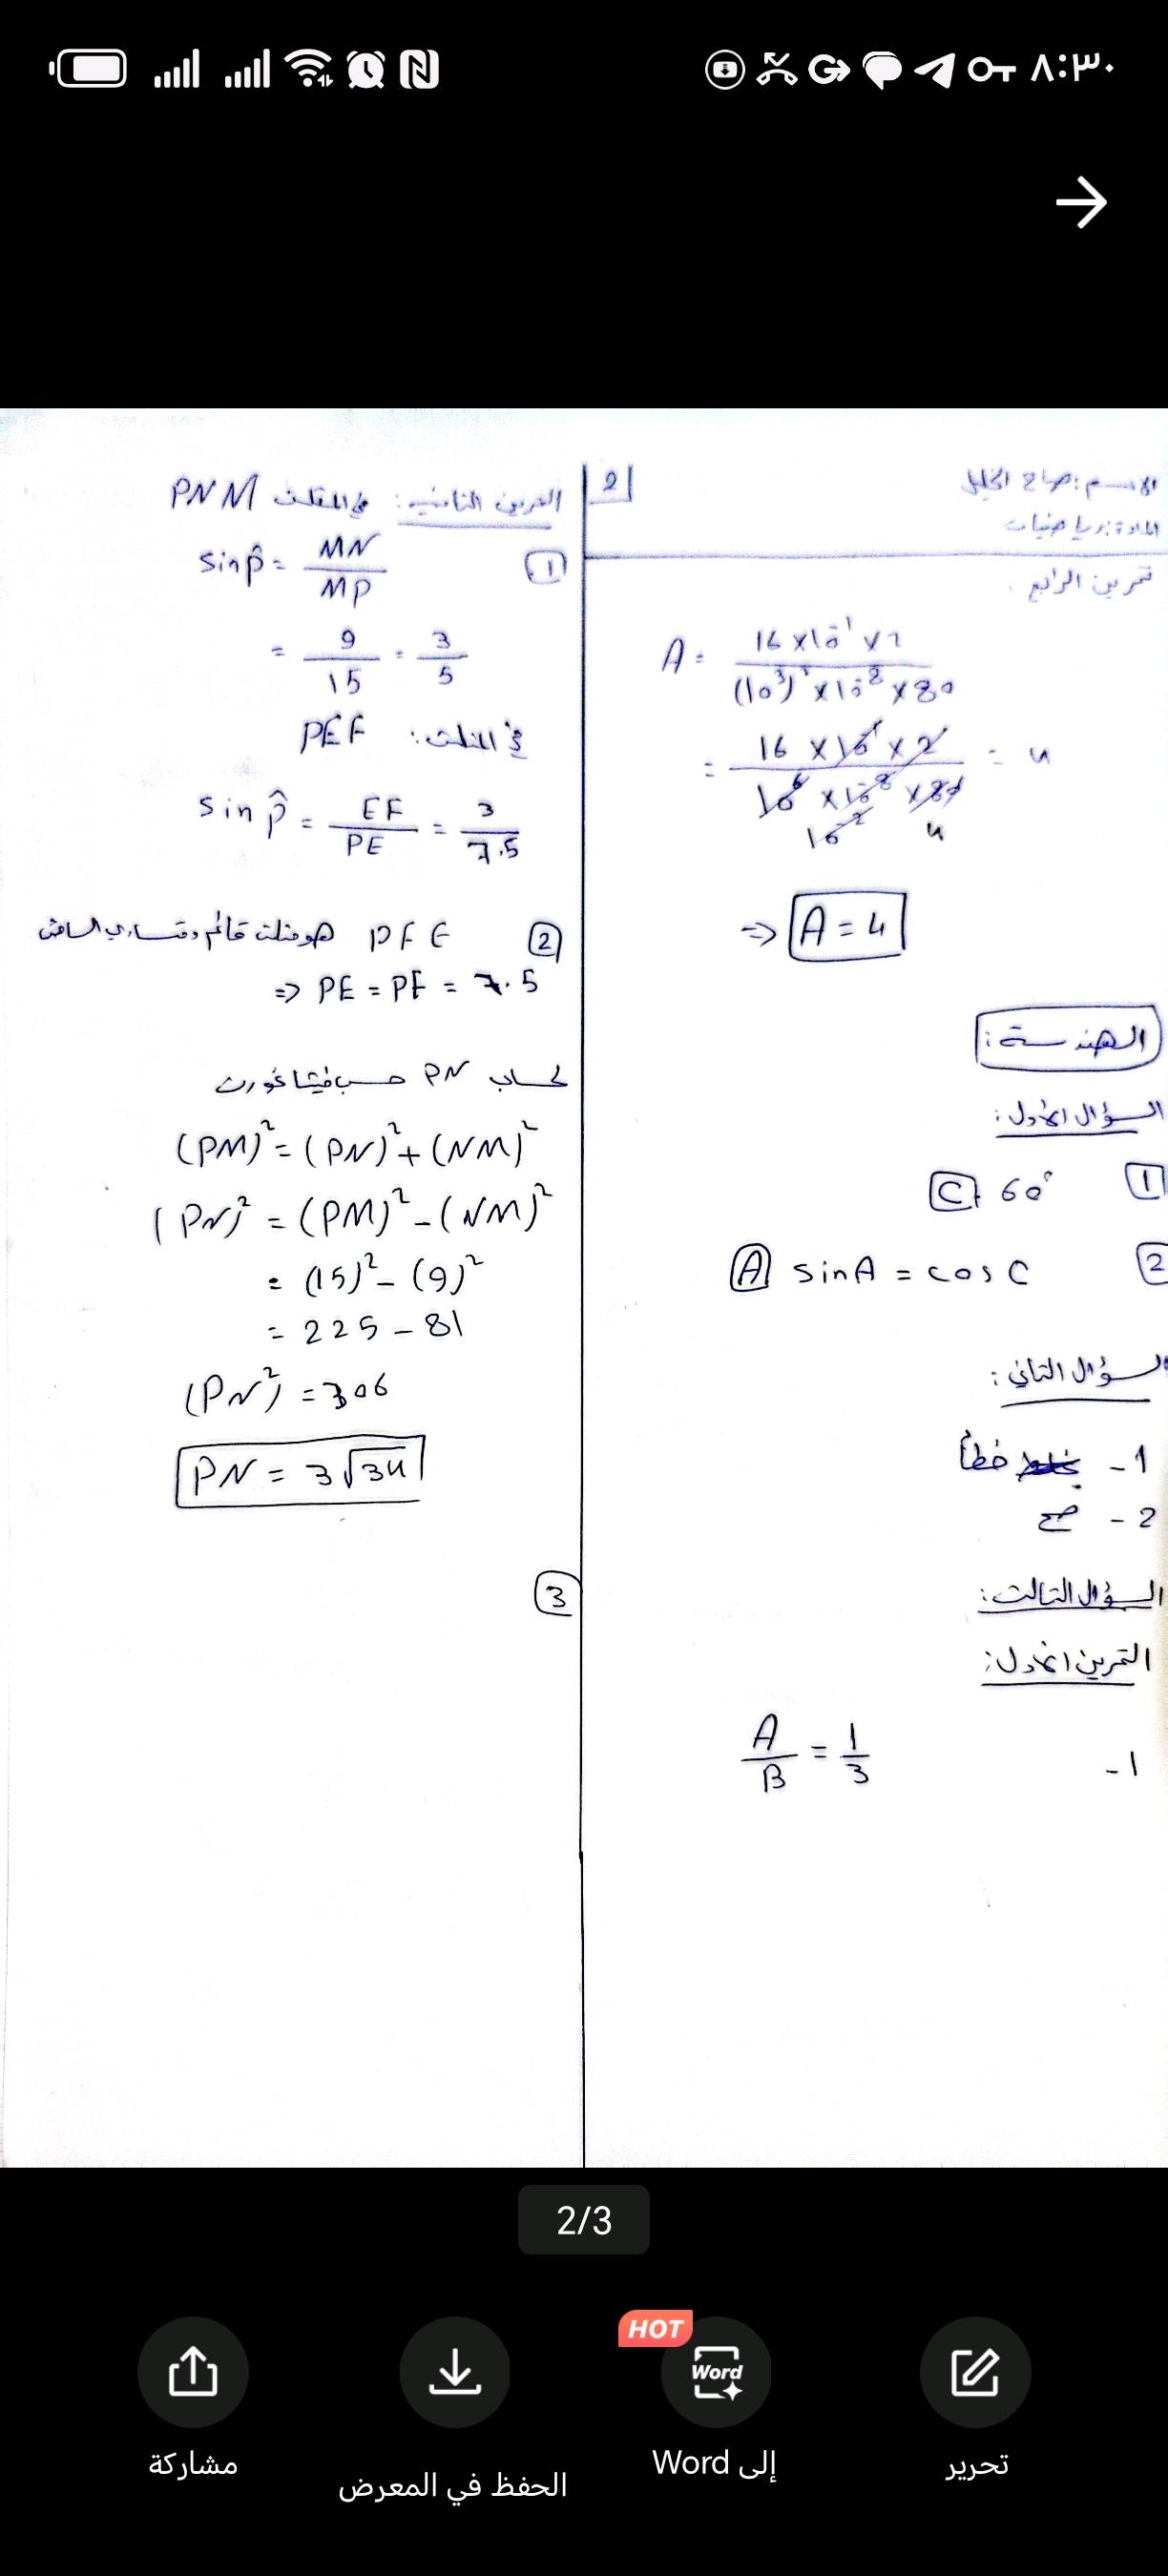 ٨:٣٠
الاسم: صباح الخليل
المادة: رياضيات
2
تمرين الرابع
A = 16 × 10⁻¹ × 2 / (10³)² × 10⁻⁸ × 80
= 16 × 10⁻¹ × 2 / 10⁶ × 10⁻⁸ × 80 = 4
10⁻² 4
⇒ A = 4
الهندسة:
السؤال الأول:
1 C 60°
2 A sinA = cos C
السؤال الثاني:
1 - خطأ
2 - صح
السؤال الثالث:
التمرين الأول:
1 - A/B = 1/3
التمرين الثاني: في المثلث PNM
1 sin P̂ = MN / MP
= 9/15 = 3/5
في المثلث: PEF
sin P̂ = EF / PE = 3 / 7.5
2 PFE هو مثلث قائم ومتساوي الساقين
⇒ PE = PF = 7.5
لحساب PN حسب فيثاغورث
(PM)² = (PN)² + (NM)²
(PN)² = (PM)² - (NM)²
= (15)² - (9)²
= 225 - 81
(PN²) = 306
PN = 3√34
3
2/3
HOT
Word
تحرير
إلى Word
الحفظ في المعرض
مشاركة